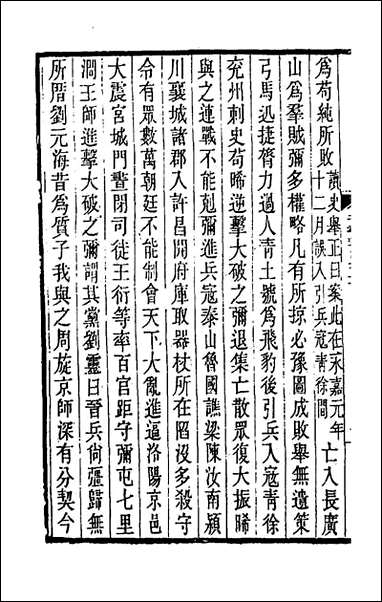 為苟純所敗讀史舉正曰案此在永嘉元年十二月誤入引兵寇青徐間亡入長廣
山為羣賊彌多權略凡有所掠必豫圖成敗舉無遺策
弓馬迅捷膂力過人青土號為飛豹後引兵入寇青徐
兖州刺史苟晞逆擊大破之彌退集亡散眾復大振晞
與之連戰不能剋彌進兵寇泰山魯國譙梁陳汝南潁
川襄城諸郡入許昌開府庫取器杖所在陷沒多殺守
令有眾數萬朝廷不能制會天下大亂進逼洛陽京邑
大震宮城門晝閉司徒王衍等率百官距守彌屯七里
澗王師進擊大破之彌謂其黨劉靈曰晉兵尚彊歸無
所厝劉元海昔為質子我與之周旋京師深有分契今